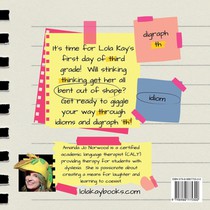 It's time for Lola Kay's
first day of third
grade! Will stinking
thinking get her all
bent out of shape?
Get ready to giggle
your way through
idioms and digraph 'th'!
digraph
th
idiom
Amanda Jo Norwood is a certified
academic language therapist (CALT)
providing therapy for students with
dyslexia. She is passionate about
creating a means for laughter and
learning to coexist.
lolakaybooks.com